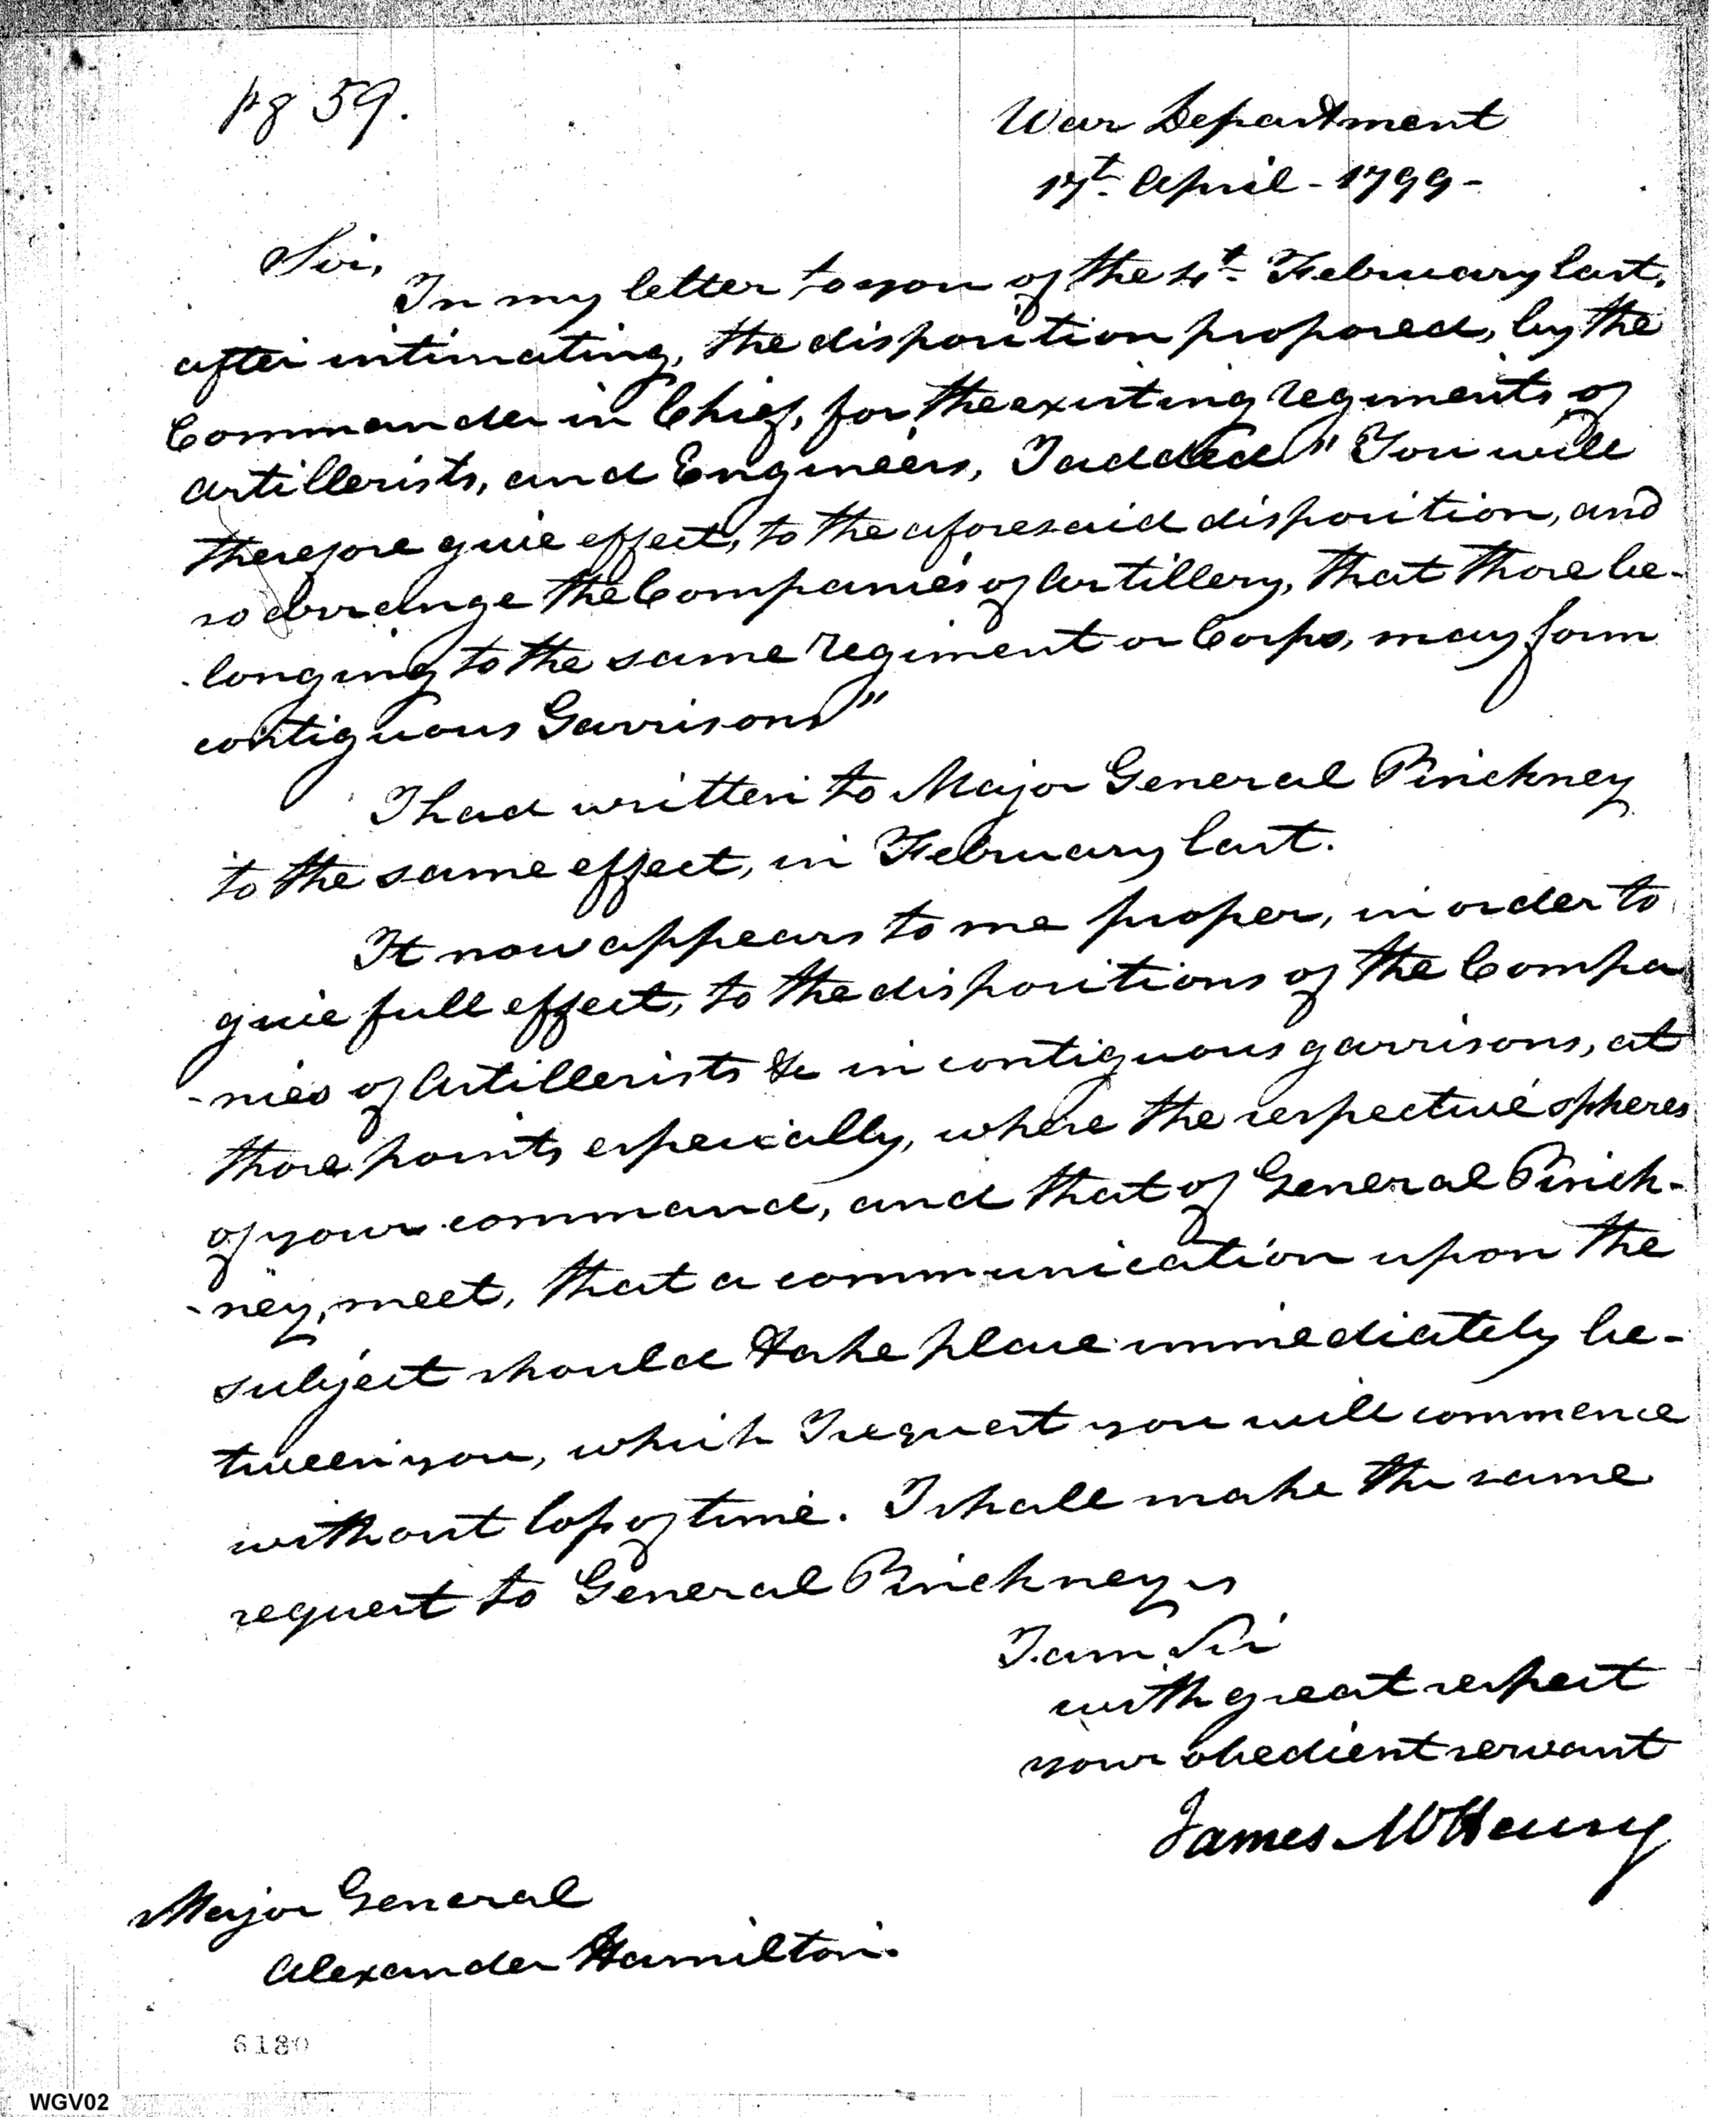 pg 59.
War Department
17t. April - 1799 -
Sir,
In my letter to you of the 4t. February last,
after intimating, the disposition proposed, by the
Commander in Chief, for the existing regiments of
Artillerists, and Engineers, I added "You will
therefore give effect, to the aforesaid disposition, and
so arrange the Companies of Artillery, that those be-
-longing to the same regiment or Corps, may form
contiguous Garrisons"
I had written to Major General Pinckney
to the same effect, in February last.
It now appears to me proper, in order to
give full effect, to the dispositions of the Compa
-nies of Artillerists &c in contiguous garrisons, at
those points especially, where the respective spheres
of your command, and that of General Pinck-
-ney, meet, that a communication upon the
subject should take place immediately be-
tween you, which I request you will commence
without loss of time. I shall make the same
request to General Pinckney
I am Sir
with great respect
your obedient servant
James McHenry
Major General
Alexander Hamilton.
6180
WGV02